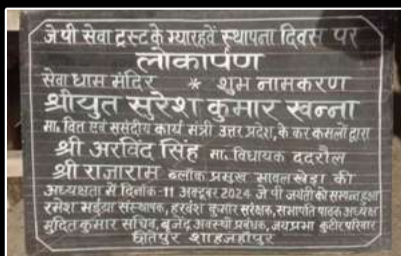 जे पी सेवा ट्रस्ट के ग्यारहवें स्थापना दिवस पर
लोकार्पण
सेवा धाम मंदिर * शुभ नामकरण
श्रीयुत सुरेश कुमार खन्ना
मा. वित्त एवं संसदीय कार्य मंत्री उत्तर प्रदेश, के कर कमलों द्वारा
श्री अरविंद सिंह मा. विधायक ददरौल
श्री राजाराम ब्लॉक प्रमुख भावलखेड़ा की
अध्यक्षता में दिनांक-11 अक्टूबर 2024 जे पी जयंती को सम्पन्न हुआ
रमेश भईया संस्थापक, हरवंश कुमार संरक्षक, सभापति पाठक अध्यक्ष
मुदित कुमार सचिव, बृजेंद्र अवस्थी प्रबंधक, जयप्रभा कुटीर परिवार
छीतेपुर शाहजहांपुर